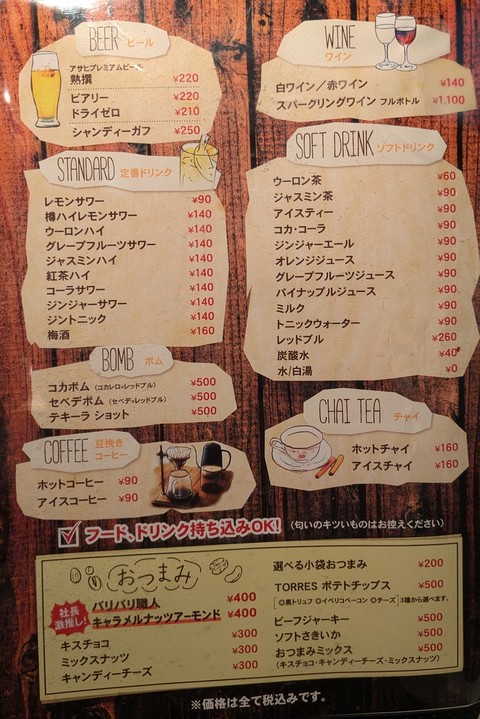 BEER ビール
アサヒプレミアムビール
熟撰 ¥220
ビアリー ¥220
ドライゼロ ¥210
シャンディーガフ ¥250
STANDARD 定番ドリンク
レモンサワー ¥90
樽ハイレモンサワー ¥140
ウーロンハイ ¥140
グレープフルーツサワー ¥140
ジャスミンハイ ¥140
紅茶ハイ ¥140
コーラサワー ¥140
ジンジャーサワー ¥140
ジントニック ¥140
梅酒 ¥160
BOMB ボム
コカボム (コカレロ+レッドブル) ¥500
セベデボム (セベデ+レッドブル) ¥500
テキーラ ショット ¥500
COFFEE 豆挽きコーヒー
ホットコーヒー ¥90
アイスコーヒー ¥90
WINE
ワイン
白ワイン／赤ワイン ¥140
スパークリングワイン フルボトル ¥1,100
SOFT DRINK ソフトドリンク
ウーロン茶 ¥60
ジャスミン茶 ¥90
アイスティー ¥90
コカ・コーラ ¥90
ジンジャーエール ¥90
オレンジジュース ¥90
グレープフルーツジュース ¥90
パイナップルジュース ¥90
ミルク ¥90
トニックウォーター ¥90
レッドブル ¥260
炭酸水 ¥40
水/白湯 ¥0
CHAI TEA チャイ
ホットチャイ ¥160
アイスチャイ ¥160
フード、ドリンク持ち込みOK! (匂いのキツいものはお控えください)
おつまみ
社長
激推し!
バリバリ職人 ¥400
キャラメルナッツアーモンド ¥400
キスチョコ ¥300
ミックスナッツ ¥300
キャンディーチーズ ¥300
選べる小袋おつまみ ¥200
TORRES ポテトチップス ¥500
[◎黒トリュフ ◎イベリコベーコン ◎チーズ] 3種から選べます。
ビーフジャーキー ¥500
ソフトさきいか ¥500
おつまみミックス ¥500
(キスチョコ・キャンディーチーズ・ミックスナッツ)
※価格は全て税込みです。